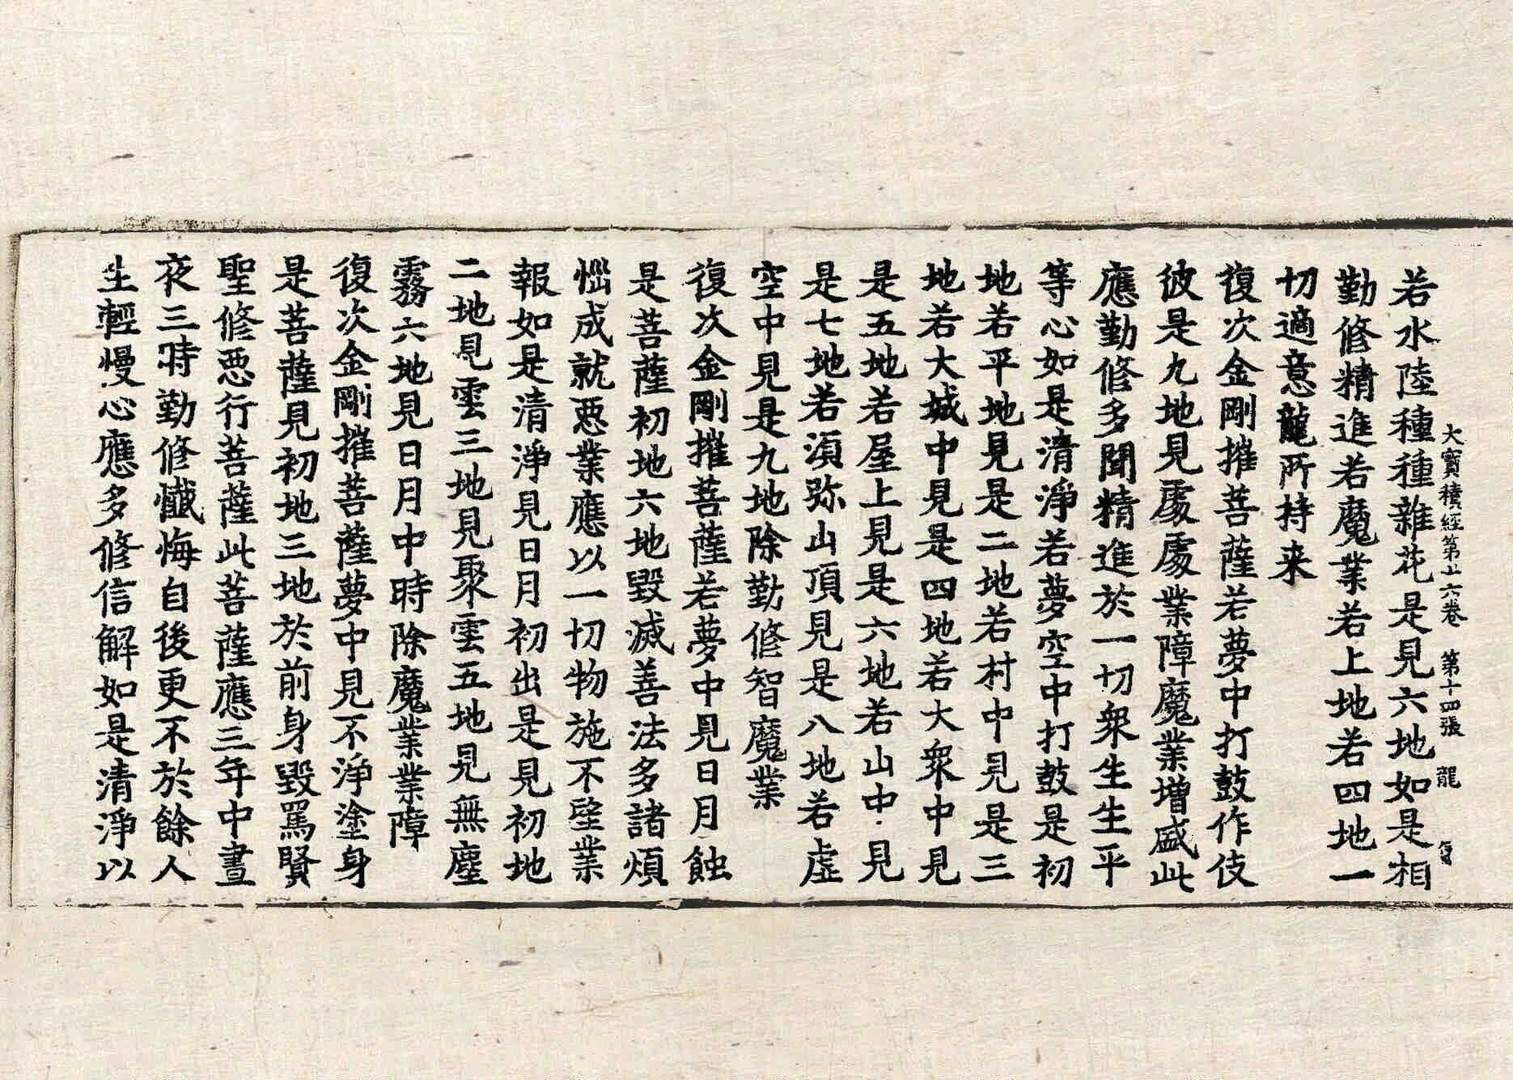 大寶積經第十六卷 第十四張 龍
若水陸種種雜花是見六地如是相
勤修精進若魔業若上地若四地一
切適意龍所持来
復次金剛摧菩薩若夢中打鼓作伎
彼是九地見處處業障魔業增盛此
應勤修多聞精進於一切衆生生平
等心如是清淨若夢空中打鼓是初
地若平地見是二地若村中見是三
地若大城中見是四地若大衆中見
是五地若屋上見是六地若山中見
是七地若湏弥山頂見是八地若虛
空中見是九地除勤修智魔業
復次金剛摧菩薩若夢中見日月蝕
是菩薩初地六地毀滅善法多諸煩
惱成就惡業應以一切物施不望業
報如是清淨見日月初出是見初地
二地見雲三地見聚雲五地見無塵
霧六地見日月中時除魔業業障
復次金剛摧菩薩夢中見不淨塗身
是菩薩見初地三地於前身毀罵賢
聖修惡行菩薩此菩薩應三年中晝
夜三時勤修懺悔自後更不於餘人
生輕慢心應多修信解如是清淨以